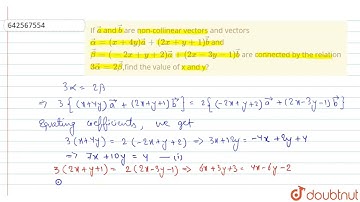 642557554
If a⃗ and b⃗ are non-collinear vectors and vectors
α⃗ = (x + 4y)a⃗ + (2x + y + 1)b⃗ and
β⃗ = (− 2x + y + 2)a⃗ + (2x − 3y − 1)b⃗ are connected by the relation
3α⃗ = 2β⃗,find the value of x and y?
3α = 2β
⇒ 3{(x+4y)a⃗ + (2x+y+1)b⃗} = 2{(-2x+y+2)a⃗ + (2x-3y-1)b⃗}
Equating coefficients, we get
3(x+4y) = 2(-2x+y+2) ⇒ 3x+12y = -4x+2y+4
⇒ 7x+10y = 4 — (i)
3(2x+y+1) = 2(2x-3y-1) ⇒ 6x+3y+3 = 4x-6y-2
doubtnut